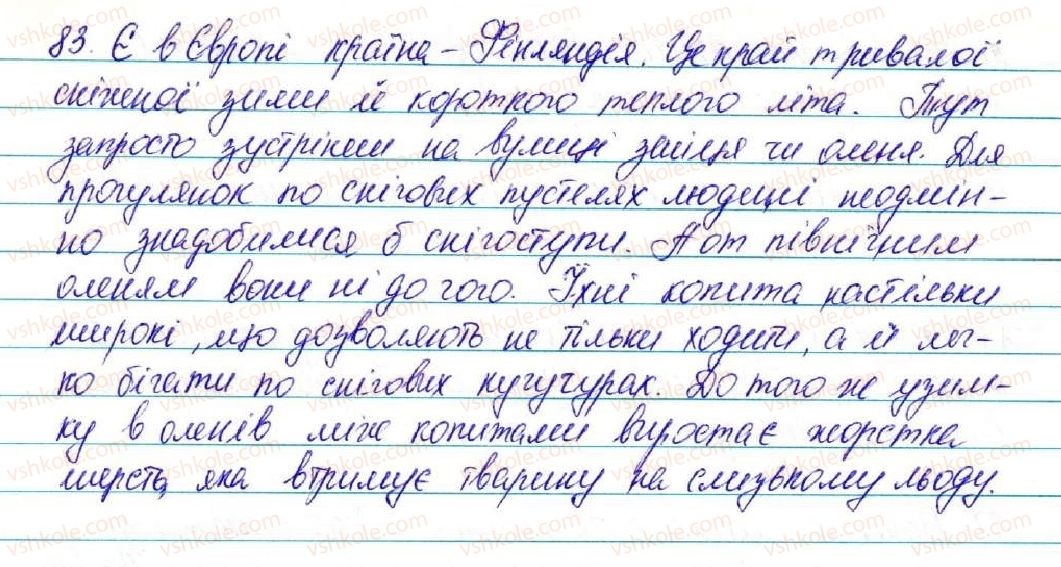 83. Є в Європі країна - Фінляндія. Це край тривалої
сніжної зими й короткого теплого літа. Тут
запросто зустрінеш на вулиці зайця чи оленя. Для
прогулянок по снігових пустелях людині неодмін-
но знадобилися б снігоступи. А от північним
оленям вони ні до чого. Їхні копита настільки
широкі, що дозволяють не тільки ходити, а й лег-
ко бігати по снігових кучугурах. До того ж узим-
ку в оленів між копитами виростає жорстка
шерсть, яка втримує тварину на слизькому льоду.